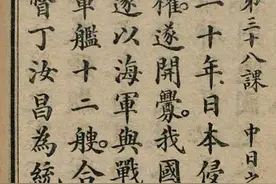 第三十八課　中日之
二十年、日本侵
權。遂開釁。我國
遂以海軍與戰
軍艦十二艘。合
督丁汝昌為統